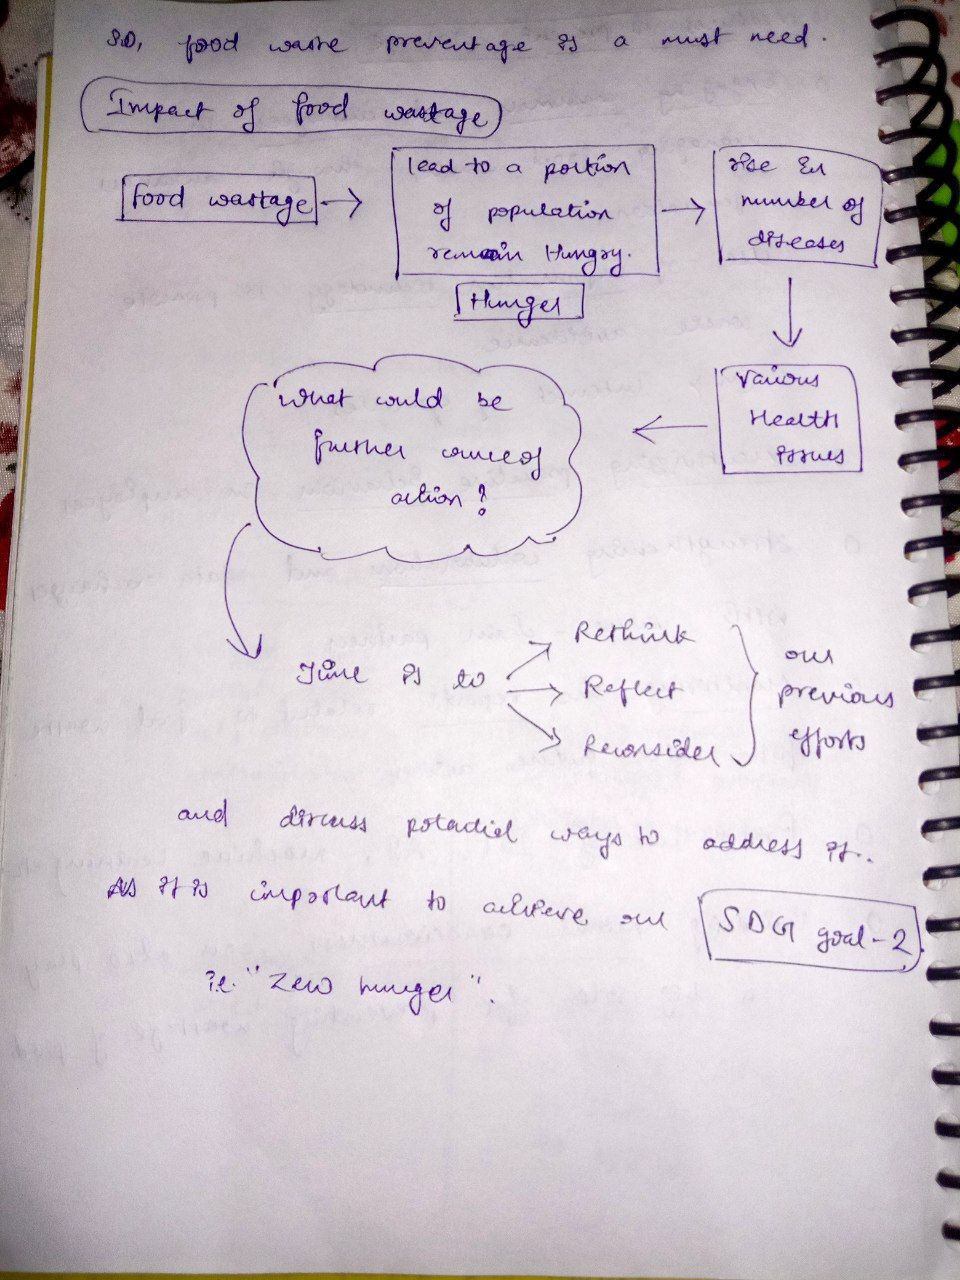 so, food waste preventage is a must need.
Impact of food wastage
food wastage
lead to a portion
of population
remain Hungry.
Hunger
rise in
number of
diseases
Various
Health
issues
What could be
further course of
action?
Time is to
Rethink
Reflect
Reconsider
our
previous
efforts
and discuss potential ways to address it.
As it is important to achieve our SDG goal-2,
i.e. "Zero hunger".